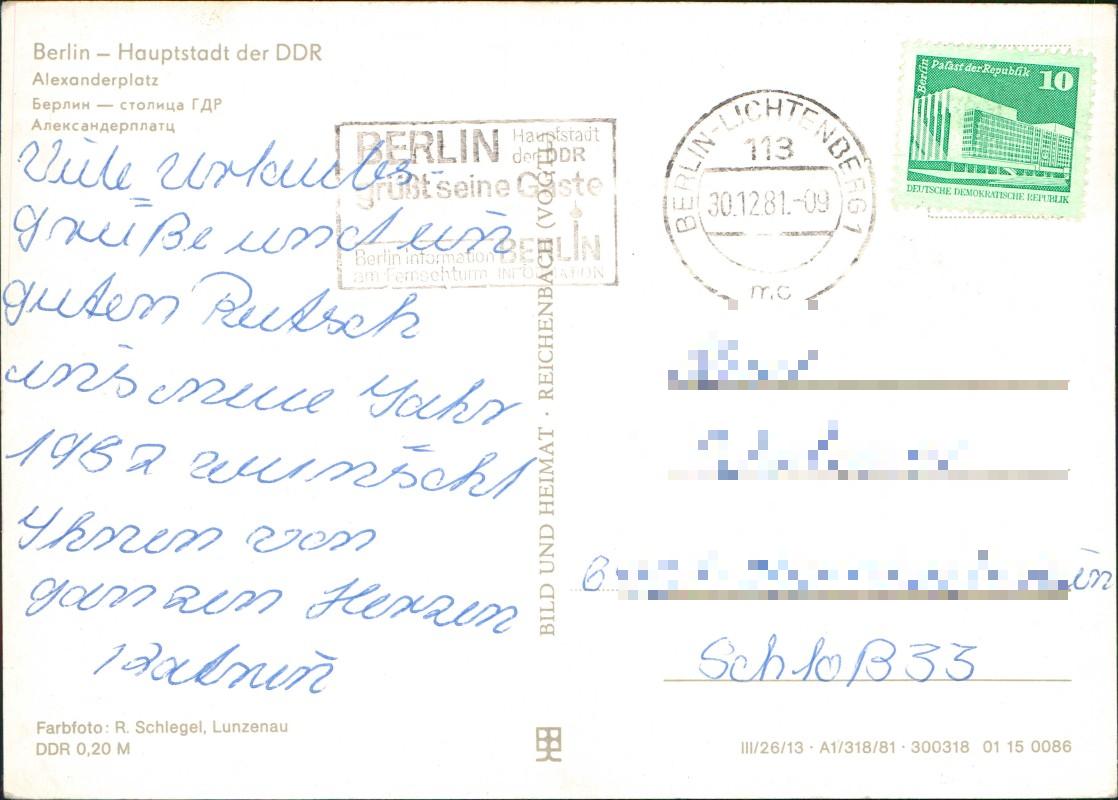 Berlin – Hauptstadt der DDR
Alexanderplatz
Берлин — столица ГДР
Александерплатц
Viele Urlaubs-
grüße und ein
guten Rutsch
ins neue Jahr
1982 wünscht
Ihnen von
ganzen Herzen
Katrin
Farbfoto: R. Schlegel, Lunzenau
DDR 0,20 M
BERLIN Hauptstadt
der DDR
grüßt seine Gäste
Berlin Information BERLIN
am Fernsehturm INFORMATION
BILD UND HEIMAT · REICHENBACH (VOGTL)
BERLIN-LICHTENBERG 1
113
30.12.81.-09
mc
Berlin Palast der Republik 10
DEUTSCHE DEMOKRATISCHE REPUBLIK
Schloß 33
III/26/13 · A1/318/81 · 300318 01 15 0086